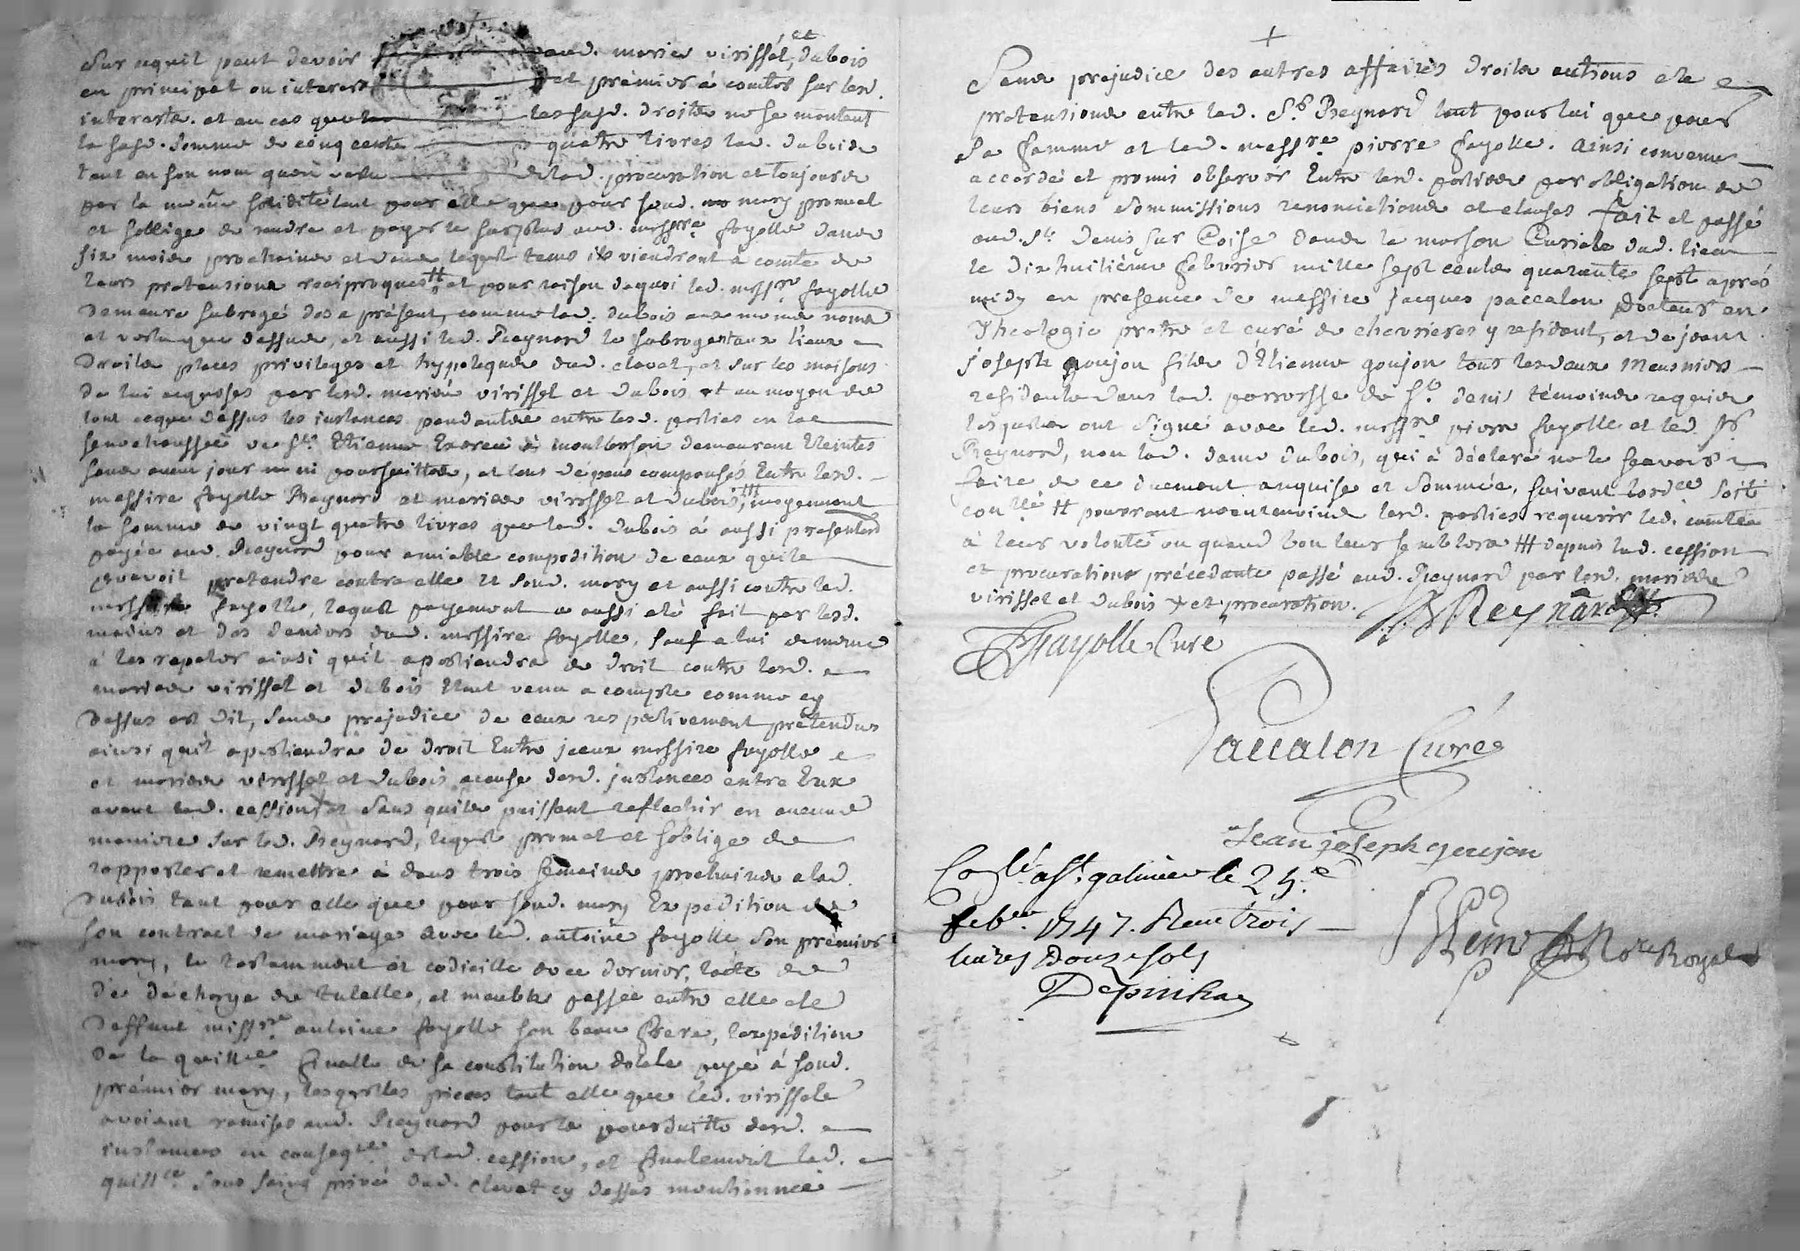 Sur cequil peut devoir aud. mariés virissel, et dubois
en principal ou interest et prémier à comter sur lesd.
interests. et au cas que les susd. droits ne se montent
la susd. somme de cinq cents quatre livres lad. dubois
tant en son nom quen vertu de lad. procuration et toujours
par la même solidité tant pour elle que pour sond. mary promet
et soblige de rendre et payer le surplus aud. messre fayolle dans
six mois prochains et dans lequel tems ils viendront à comte de
leurs pretensions reciproques # et pour raison dequoi led. messre fayolle
demeure subrogé des a présent, comme lad. dubois aux mêmes noms
et vertu que dessus, et aussi led. Reynard le subrogent aux lieux
droits places privileges et hypoteques dud. clavet, et sur les maisons
de lui acquises par lesd. mariés virissel et dubois et au moyen de
tout ceque dessus les instances pendantes entre lesd. parties en la
senechaussée de St. Etienne demeurent éteintes
sans aucun jour ni poursuittes, et tous dépens compensés Entre lesd.
messire fayolle Reynard et mariés virissel et dubois, # moyennant
la somme de vingt quatre livres que lad. dubois à aussi presentement
payée aud. Reynard pour amiable composition de ceux quil
pouvoit pretendre contre elle et sond. mary et aussi contre led.
messire fayolle, lequel payement a aussi eté fait par lesd.
mediés et des deniers dud. messire fayolle, sauf a lui de même
à les repeter ainsi quil apartiendra de droit contre lesd.
mariés virissel et dubois tout venu a compte comme cy
dessus est dit, sans prejudice de ceux respectivement prétendus
ainsi quil apartiendra de droit Entre iceux messire fayolle
et mariés virissel et dubois acause desd. instances entre Eux
avant lad. cession et sans quils puissent reflechir en aucune
maniere sur led. Reynard, lequel promet et soblige de
rapporter et remettre à dans trois semaines prochaines a lad.
dubois tant pour elle que pour sond. mary Expedition de
son contract de mariage avec led. antoine fayolle son prémier
mary, le testament et codicille de ce dernier, lacte de
de décharge de tutelle, et meubles passée entre elle et le
deffunt missre antoine fayolle son beau frere, lexpédition
de la quittce finalle de sa constitution dotale payé à sond.
prémier mary, lesquelles pieces tant elle que led. virissel
avoient remises aud. Reynard pour la poursuitte desd.
instances en conseqce de lad. cession, et finalement lad.
quittce sous seing privé dud. clavet cy dessus mentionnée
Sans prejudice des autres affaires droits actions et
pretensions entre led. Sr. Reynard tant pour lui que pour
sa famme et led. messre pierre fayolle. Ainsi convenu
accordé et promis observer Entre lesd. parties par obligation de
leurs biens soummissions renonciations et clauses fait et passé
aud. St. denis sur Coise dans la maison Curiale dud. lieu
le dixhuitiéme febvrier mille sept cents quarante sept aprés
midy en presence de messire Jacques paccalon Docteur en
Theologie prêtre et curé de chevrieres y residant, et de jean
joseph goujon fils d'Etienne goujon tous les deux meusniers
residants dans lad. parroisse de St. denis témoins requis
lesquels ont signé avec led. messre pierre fayolle et led. Sr.
Reynard, non lad. dame dubois, qui à déclaré ne le scavoir
faire de ce duement enquise et sommée, suivant lordce soit
conllé # pourront neantmoins lesd. parties requerir led. comte
à leur volonté ou quand bon leur semblera ### depuis lad. cession
et procuration précedante passé aud. Reynard par lesd. mariés
virissel et dubois + et procuration. Reynard
Fayolle Curé
Paccalon Curé
Jean joseph goujon
Conlé. a St. galmier le 25.e
febver 1747. Recu trois
livres Douze sols
Depinhac
Nore Royal